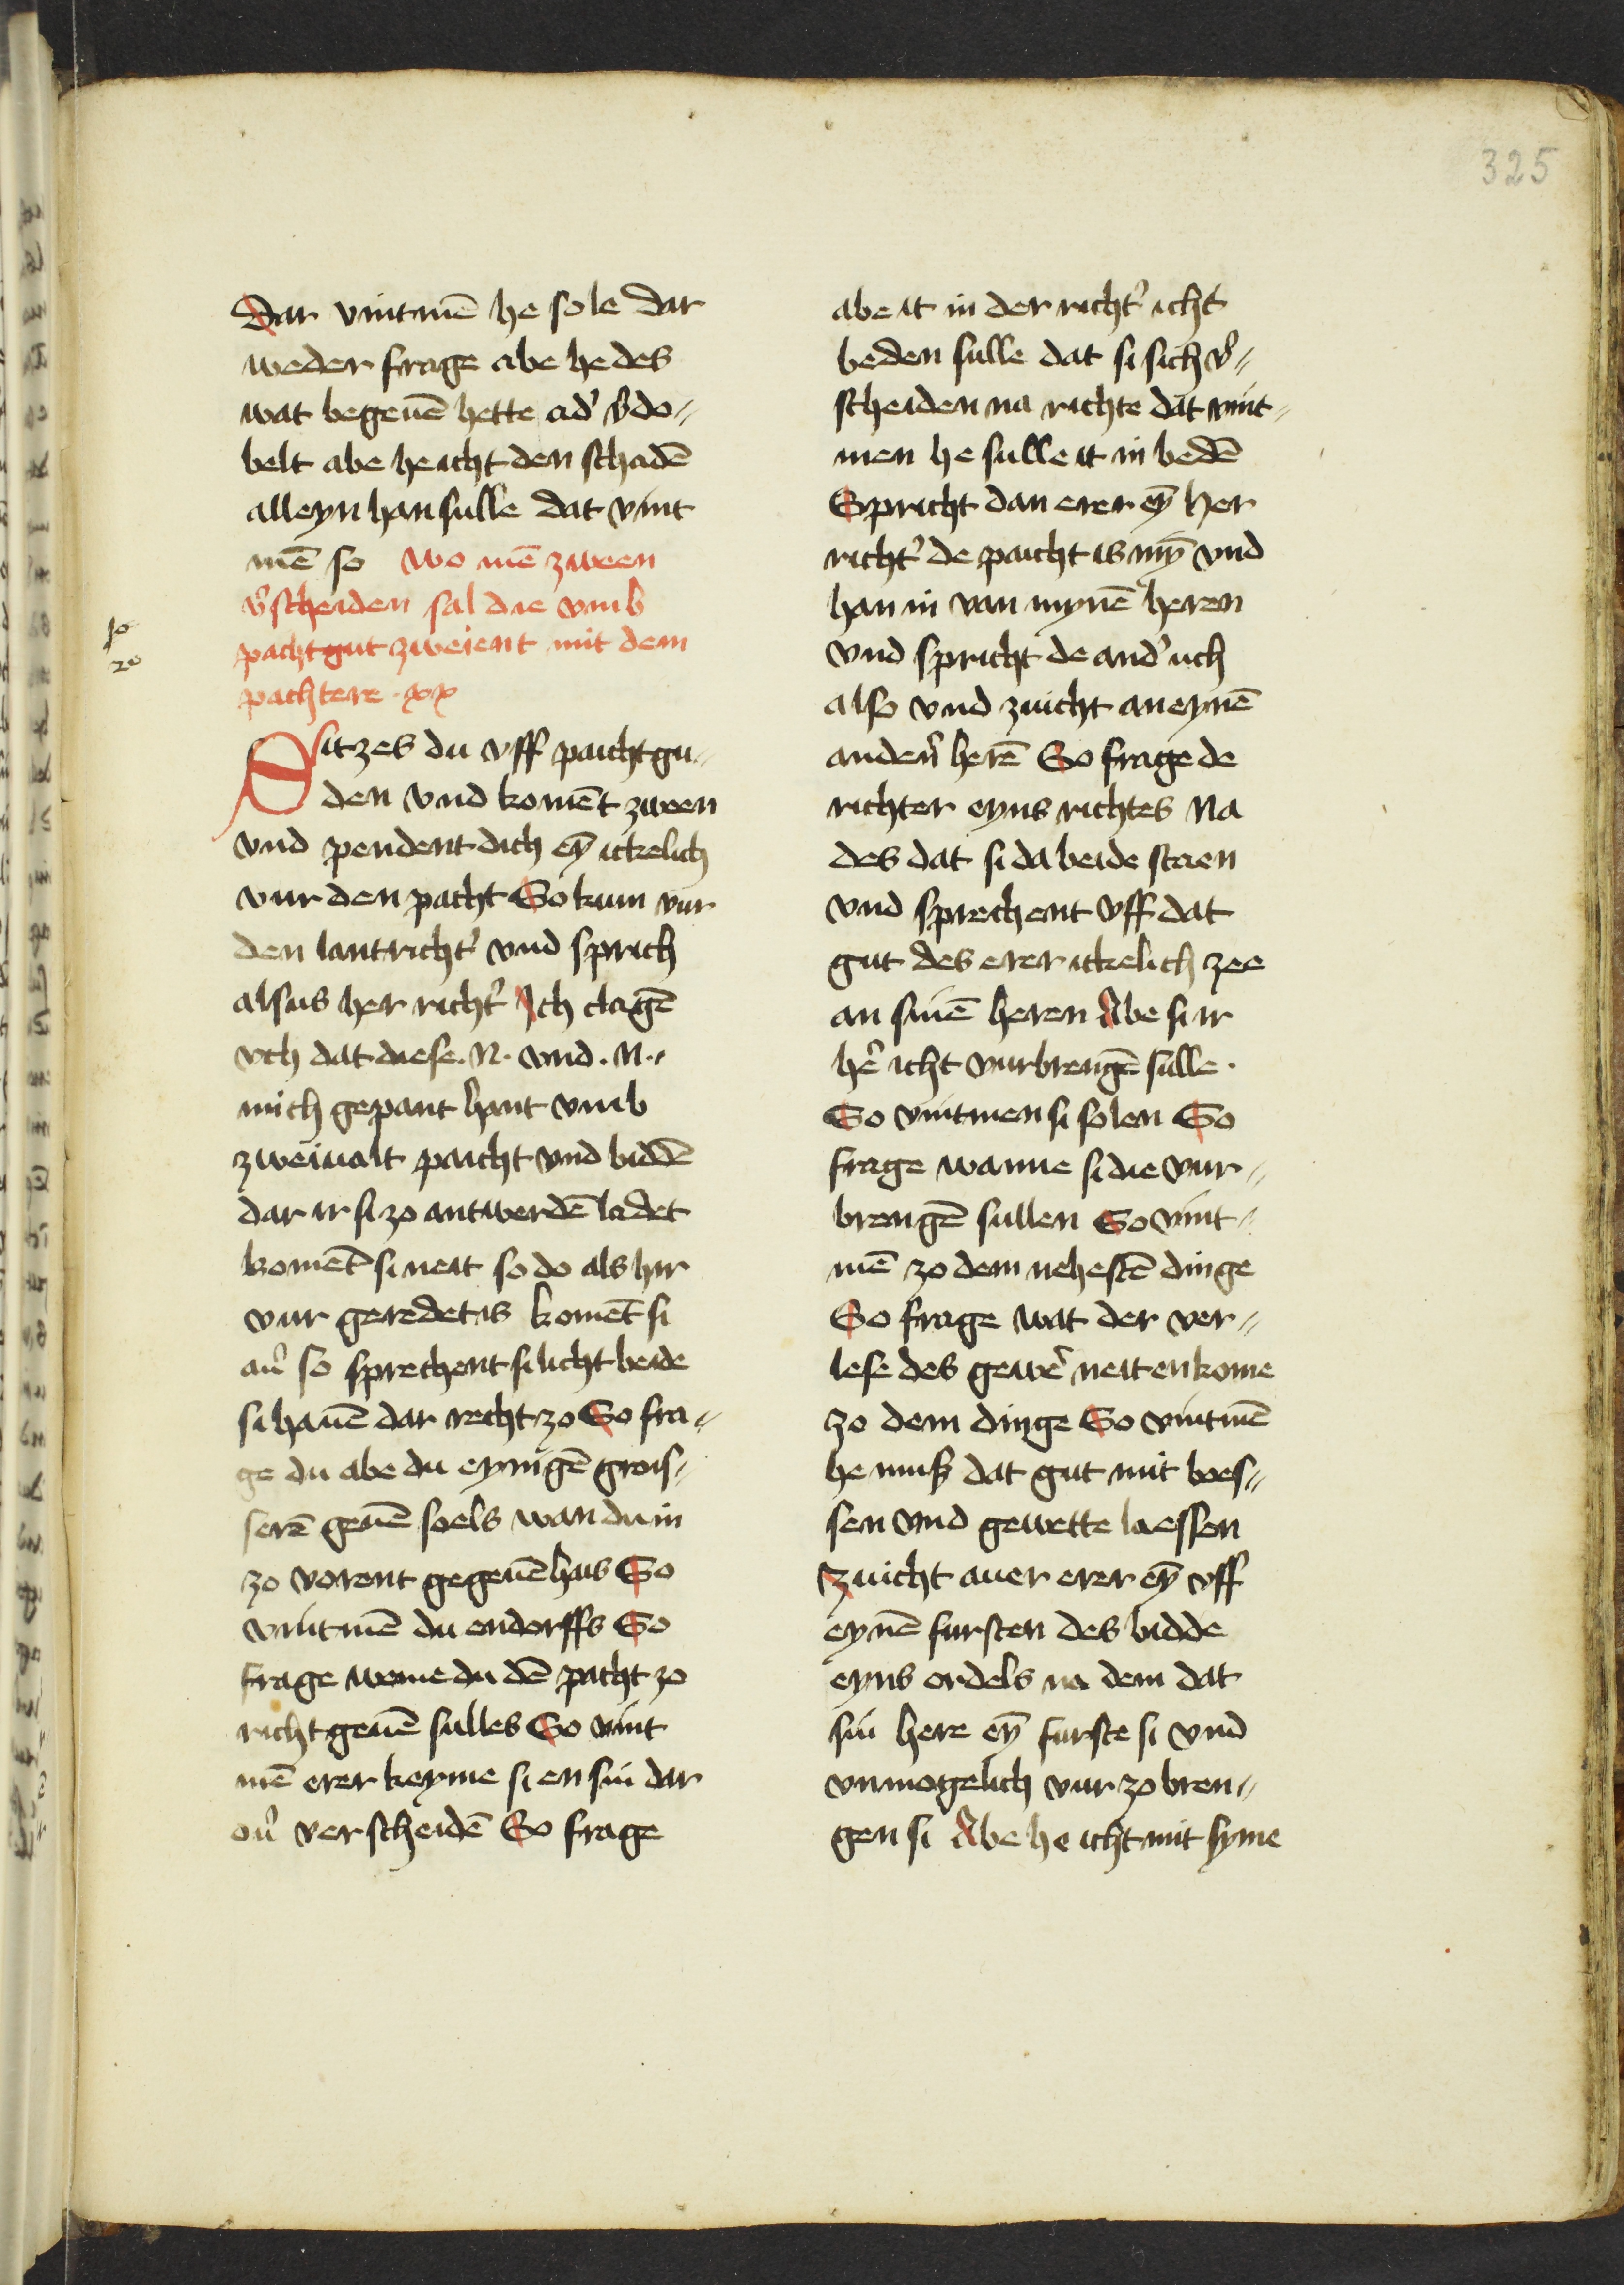 325
Dar vintmē he sole dar
weder frage abe he des
wat begeuē hette ad' v'do⸗
belt abe he icht den schadē
alleyn han sulle dat vint
mē so wo mē zween
v'scheiden sal die vmb
pachtgut zweient mit dem
pachtere · xx
20
Sitzes du vff paichtgu⸗
den vnd komēt zween
vnd pendent dich eȳ itkelich
vur den pacht So kum vur
den lantricht' vnd sprich
alsus her richt' Ich clagē
vch dat diese . N . vnd . N .
mich gepant hant vmb
zweiualt paicht vnd biddē
dar ir si zo antwerdē ladet
komēt si neit so do als hir
vur geredet is komēt si
au' so sprechent si licht beide
si hauē dar recht zo So fra⸗
ge du abe du eynigē grois⸗
serē geuē soels wan du in
zo vorent gegeuē hais So
vintmē du endorffs So
frage weme du dē pacht zo
richt geuē sulles So vint
mē erer keyme si en sin dar
ou' verscheidē So frage
abe it in der richt' icht
beden sulle dat si sich v'⸗
scheiden na richte dat vint⸗
men he sulle it in bedē
Spricht dan erer eȳ her
richt' de paicht is mȳ vnd
han in van mynē heren
vnd spricht de and' uch
also vnd zuicht an eynē
anden' herē So frage de
richter eyns richtes Na
des dat si da beide staen
vnd sprechent vff dat
gut des erer itkelich zee
an sinē heren Abe si ir
he' icht vurbrengē sulle .
So vintmen si solen So
frage wanne si die vur⸗
brengē sullen So vint⸗
mē zo dem nehestē dinge
So frage wat der ver⸗
lese des gewe' neit enkome
zo dem dinge So vintmē
he muß dat gut mit boes⸗
sen vnd gewette laessen
Zuicht auer erer eȳ vff
eynē fursten des bidde
eyns ordels na dem dat
sin here eȳ furste si vnd
vnmogelich vur zo bren⸗
gen si Abe he icht mit syme